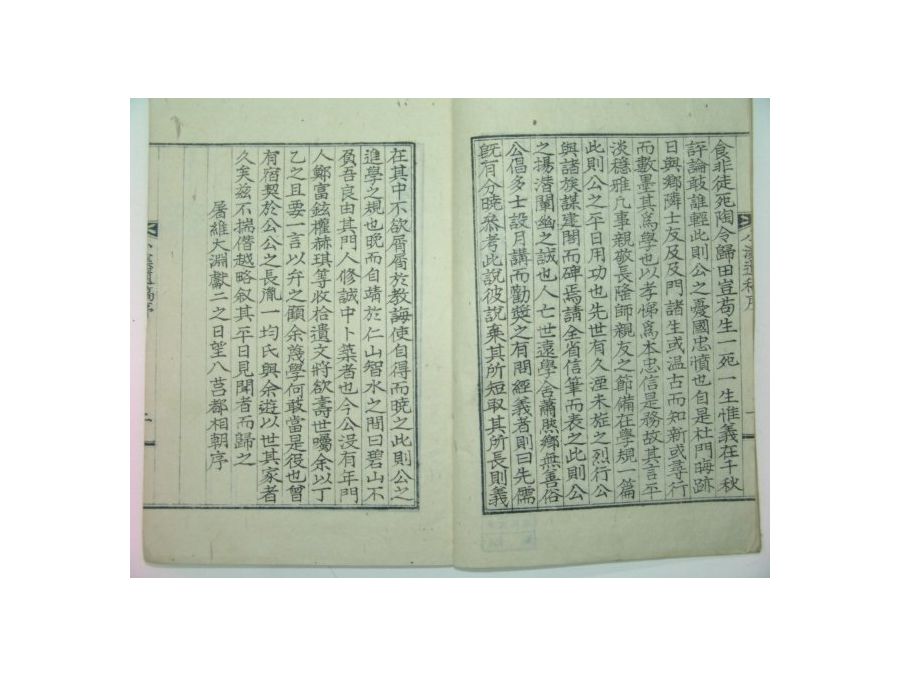 食非徒死陶令歸田豈苟生一死一生惟義在千秋
評論敢誰輕此則公之憂國忠憤也自是杜門晦跡
日與鄕隣士友及及門諸生或温古而知新或尋行
而數墨其爲學也以孝悌爲本忠信是務故其言平
淡穩雅凡事親敬長隆師親友之節備在學規一篇
此則公之平日用功也先世有久湮未㫌之烈行公
與諸族謀建閣而碑焉請全省信筆而表之此則公
之揚潛闡幽之誠也人亡世遠學舍蕭然鄕無善俗
公倡多士設月講而勸奬之有問經義者則曰先儒
旣有分曉叅考此說彼說棄其所短取其所長則義
在其中不欲屑屑於教誨使自得而曉之此則公之
進學之規也晩而自靖於仁山智水之間曰碧山不
負吾良由其門人修誠中卜築者也今公没有年門
人鄭富鉉權赫琪等收拾遺文將欲壽世囑余以丁
乙之且要一言以弁之顧余蔑學何敢當是役也曾
有宿契於公公之長胤一均氏與余遊以世其家者
久矣玆不揣僭越略叙其平日見聞者而歸之
屠維大淵獻二之日望八莒都相朝序